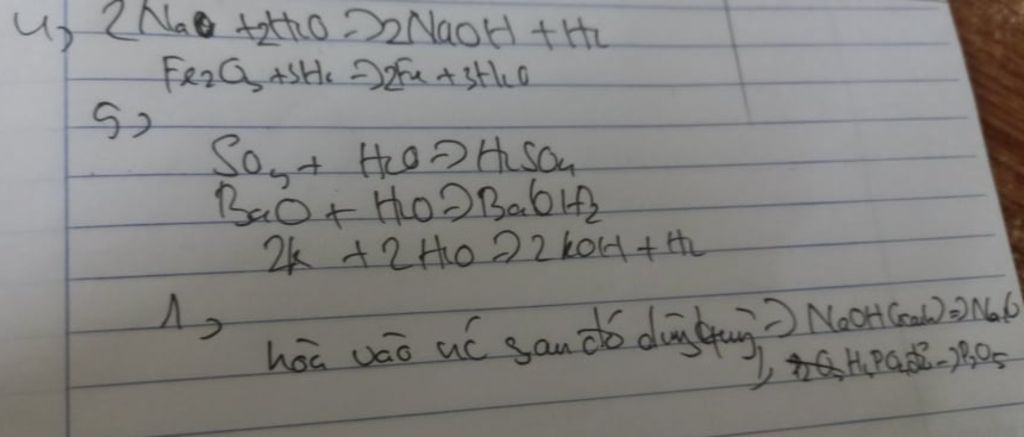 4, 2Na + 2H2O => 2NaOH + H2
Fe2O3 + 3H2 => 2Fe + 3H2O
5,
SO3 + H2O => H2SO4
BaO + H2O => BaOH2
2k + 2H2O => 2kOH + H2
1,
hòà vào nc sau đó dùng quỳ => NaOH (xanh) => Na
H3PO4 đỏ => P2O5